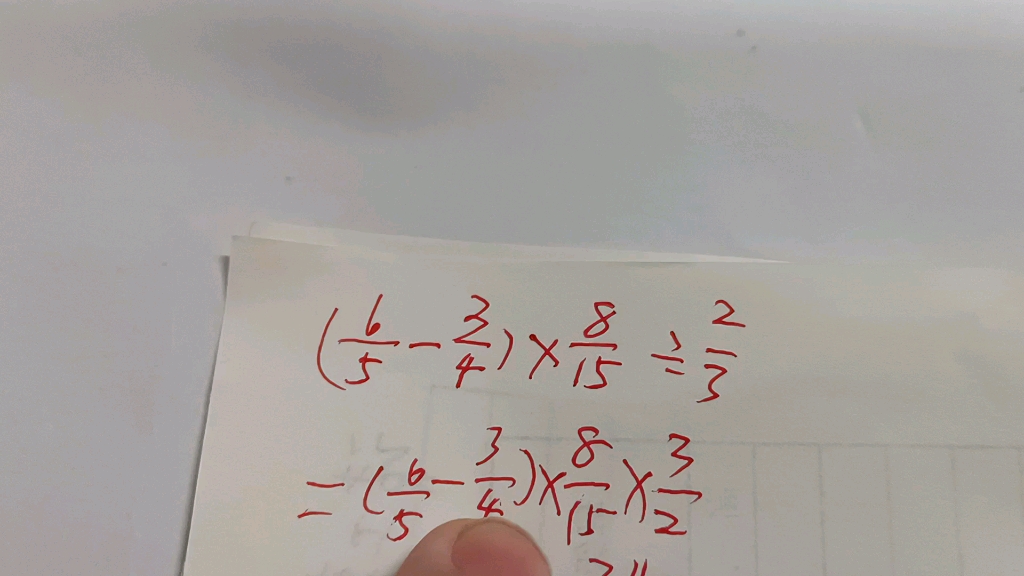 (6/5 - 3/4) × 8/15 ÷ 2/3
= (6/5 - 3/4) × 8/15 × 3/2